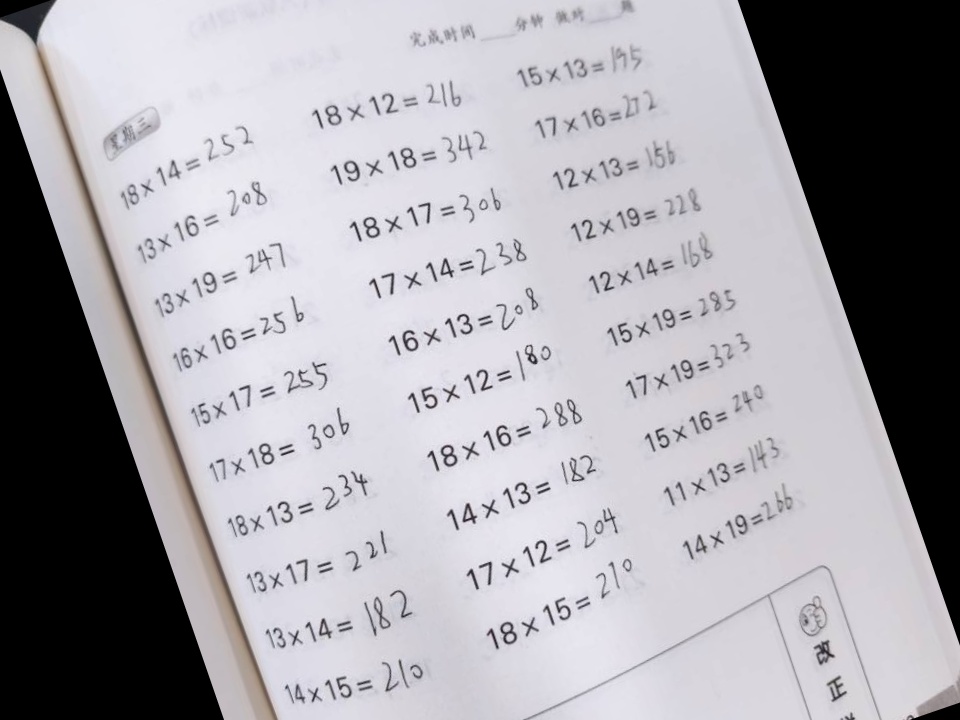 完成时间____分钟 做对____题
星期三
18×14=252
13×16=208
13×19=247
16×16=256
15×17=255
17×18=306
18×13=234
13×17=221
13×14=182
14×15=210
18×12=216
19×18=342
18×17=306
17×14=238
16×13=208
15×12=180
18×16=288
14×13=182
17×12=204
18×15=210
15×13=195
17×16=272
12×13=156
12×19=228
12×14=168
15×19=285
17×19=323
15×16=240
11×13=143
14×19=266
改
正